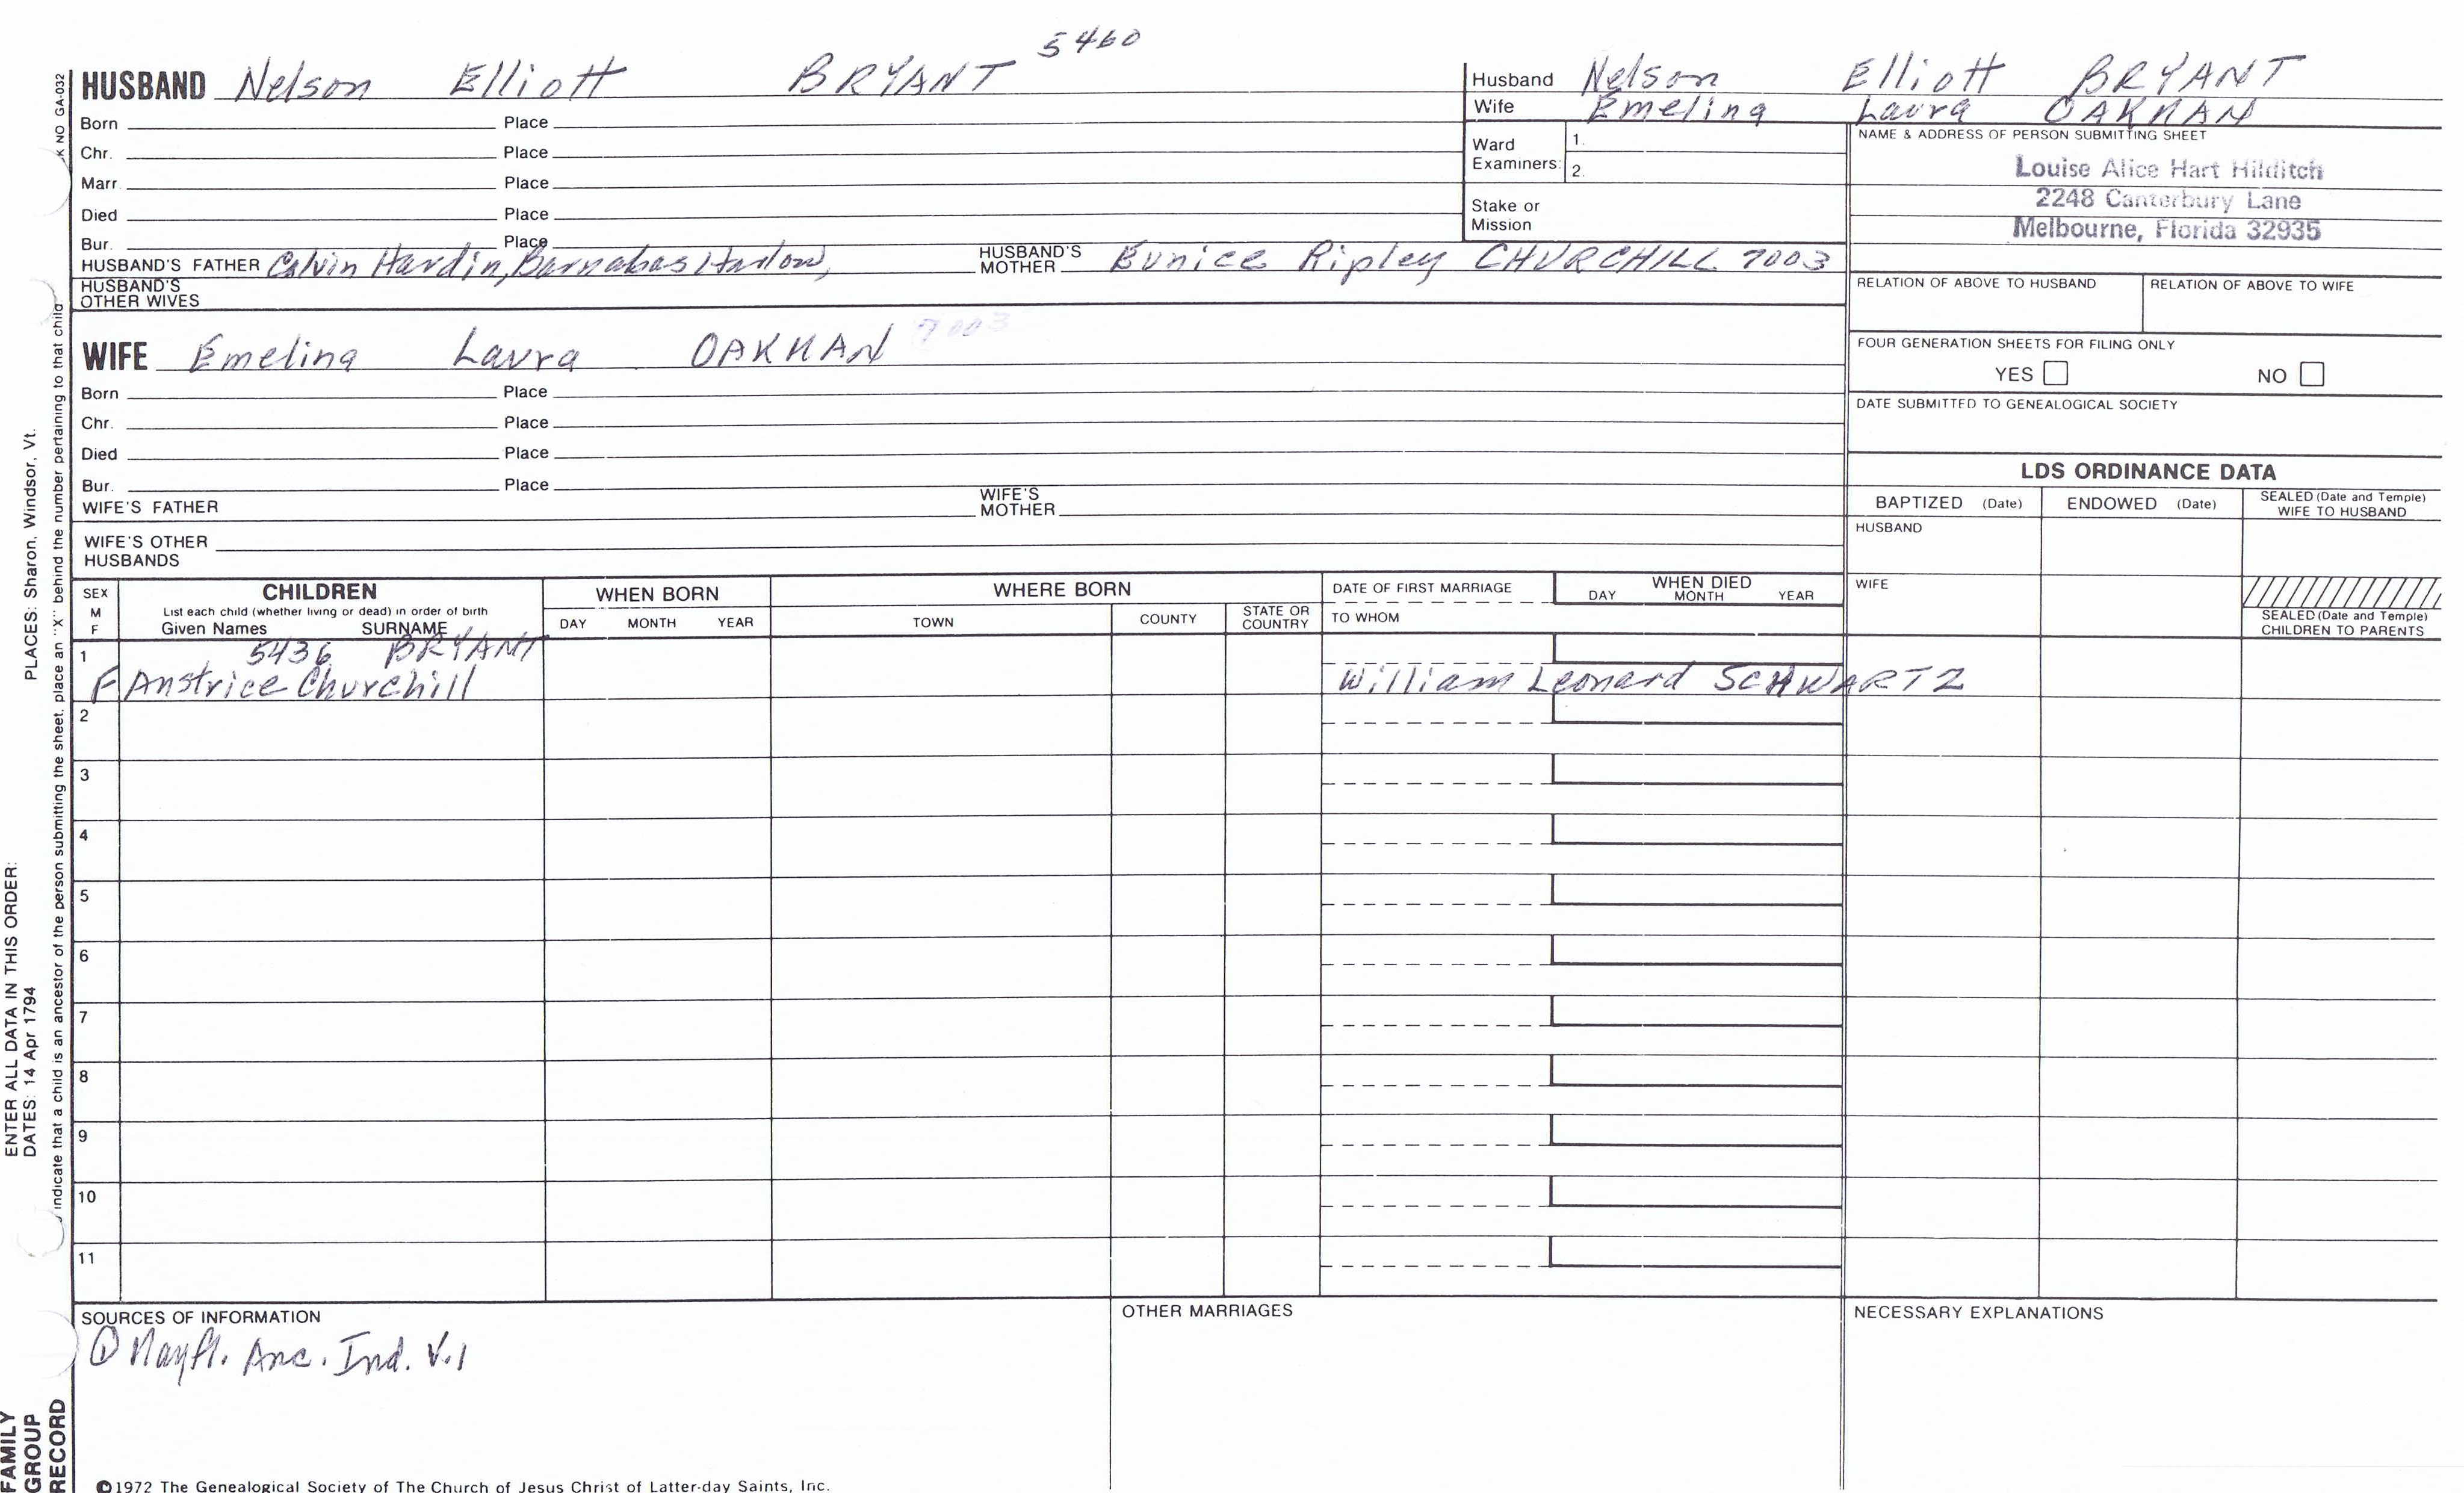 5460
HUSBAND Nelson Elliott BRYANT
Born Place
Chr. Place
Marr. Place
Died Place
Bur. Place
HUSBAND'S FATHER Calvin Hardin, Barnabas Harlow,
HUSBAND'S MOTHER Eunice Ripley CHURCHILL 7003
HUSBAND'S OTHER WIVES
Husband Nelson Elliott BRYANT
Wife Emelina Laura OAKMAN
Ward Examiners: 1.
2.
Stake or Mission
NAME & ADDRESS OF PERSON SUBMITTING SHEET
Louise Alice Hart Hilditch
2248 Canterbury Lane
Melbourne, Florida 32935
RELATION OF ABOVE TO HUSBAND
RELATION OF ABOVE TO WIFE
WIFE Emelina Laura OAKMAN 7003
Born Place
Chr. Place
Died Place
Bur. Place
WIFE'S FATHER
WIFE'S MOTHER
WIFE'S OTHER HUSBANDS
FOUR GENERATION SHEETS FOR FILING ONLY
YES NO
DATE SUBMITTED TO GENEALOGICAL SOCIETY
LDS ORDINANCE DATA
BAPTIZED (Date) ENDOWED (Date) SEALED (Date and Temple) WIFE TO HUSBAND
HUSBAND
WIFE
SEALED (Date and Temple) CHILDREN TO PARENTS
SEX M F
CHILDREN
List each child (whether living or dead) in order of birth
Given Names SURNAME
WHEN BORN
DAY MONTH YEAR
WHERE BORN
TOWN COUNTY STATE OR COUNTRY
DATE OF FIRST MARRIAGE
TO WHOM
WHEN DIED
DAY MONTH YEAR
1 5436 BRYANT
F Anstrice Churchill William Leonard SCHWARTZ
2
3
4
5
6
7
8
9
10
11
SOURCES OF INFORMATION
① Mayfl. Anc. Ind. V.1
OTHER MARRIAGES
NECESSARY EXPLANATIONS
©1972 The Genealogical Society of The Church of Jesus Christ of Latter-day Saints, Inc.
FAMILY GROUP RECORD
ENTER ALL DATA IN THIS ORDER:
DATES: 14 Apr 1794 PLACES: Sharon, Windsor, Vt.
indicate that a child is an ancestor of the person submitting the sheet, place an "X" behind the number pertaining to that child
NO GA-032